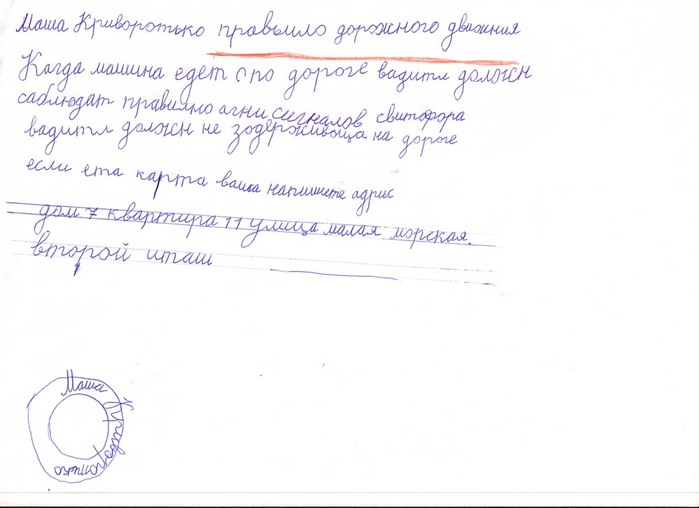 Маша Криворотько правьило дорожного движния
Кагда машина едет спо дороге вадитл должн
саблюдат правилно агни сигналов свитофора
вадитл должн не зодерживоща на дороге
если ета карта ваша напишите адрис
дом 7 квартира 11 улица малая морская.
второй иташ
Маша Криворотько